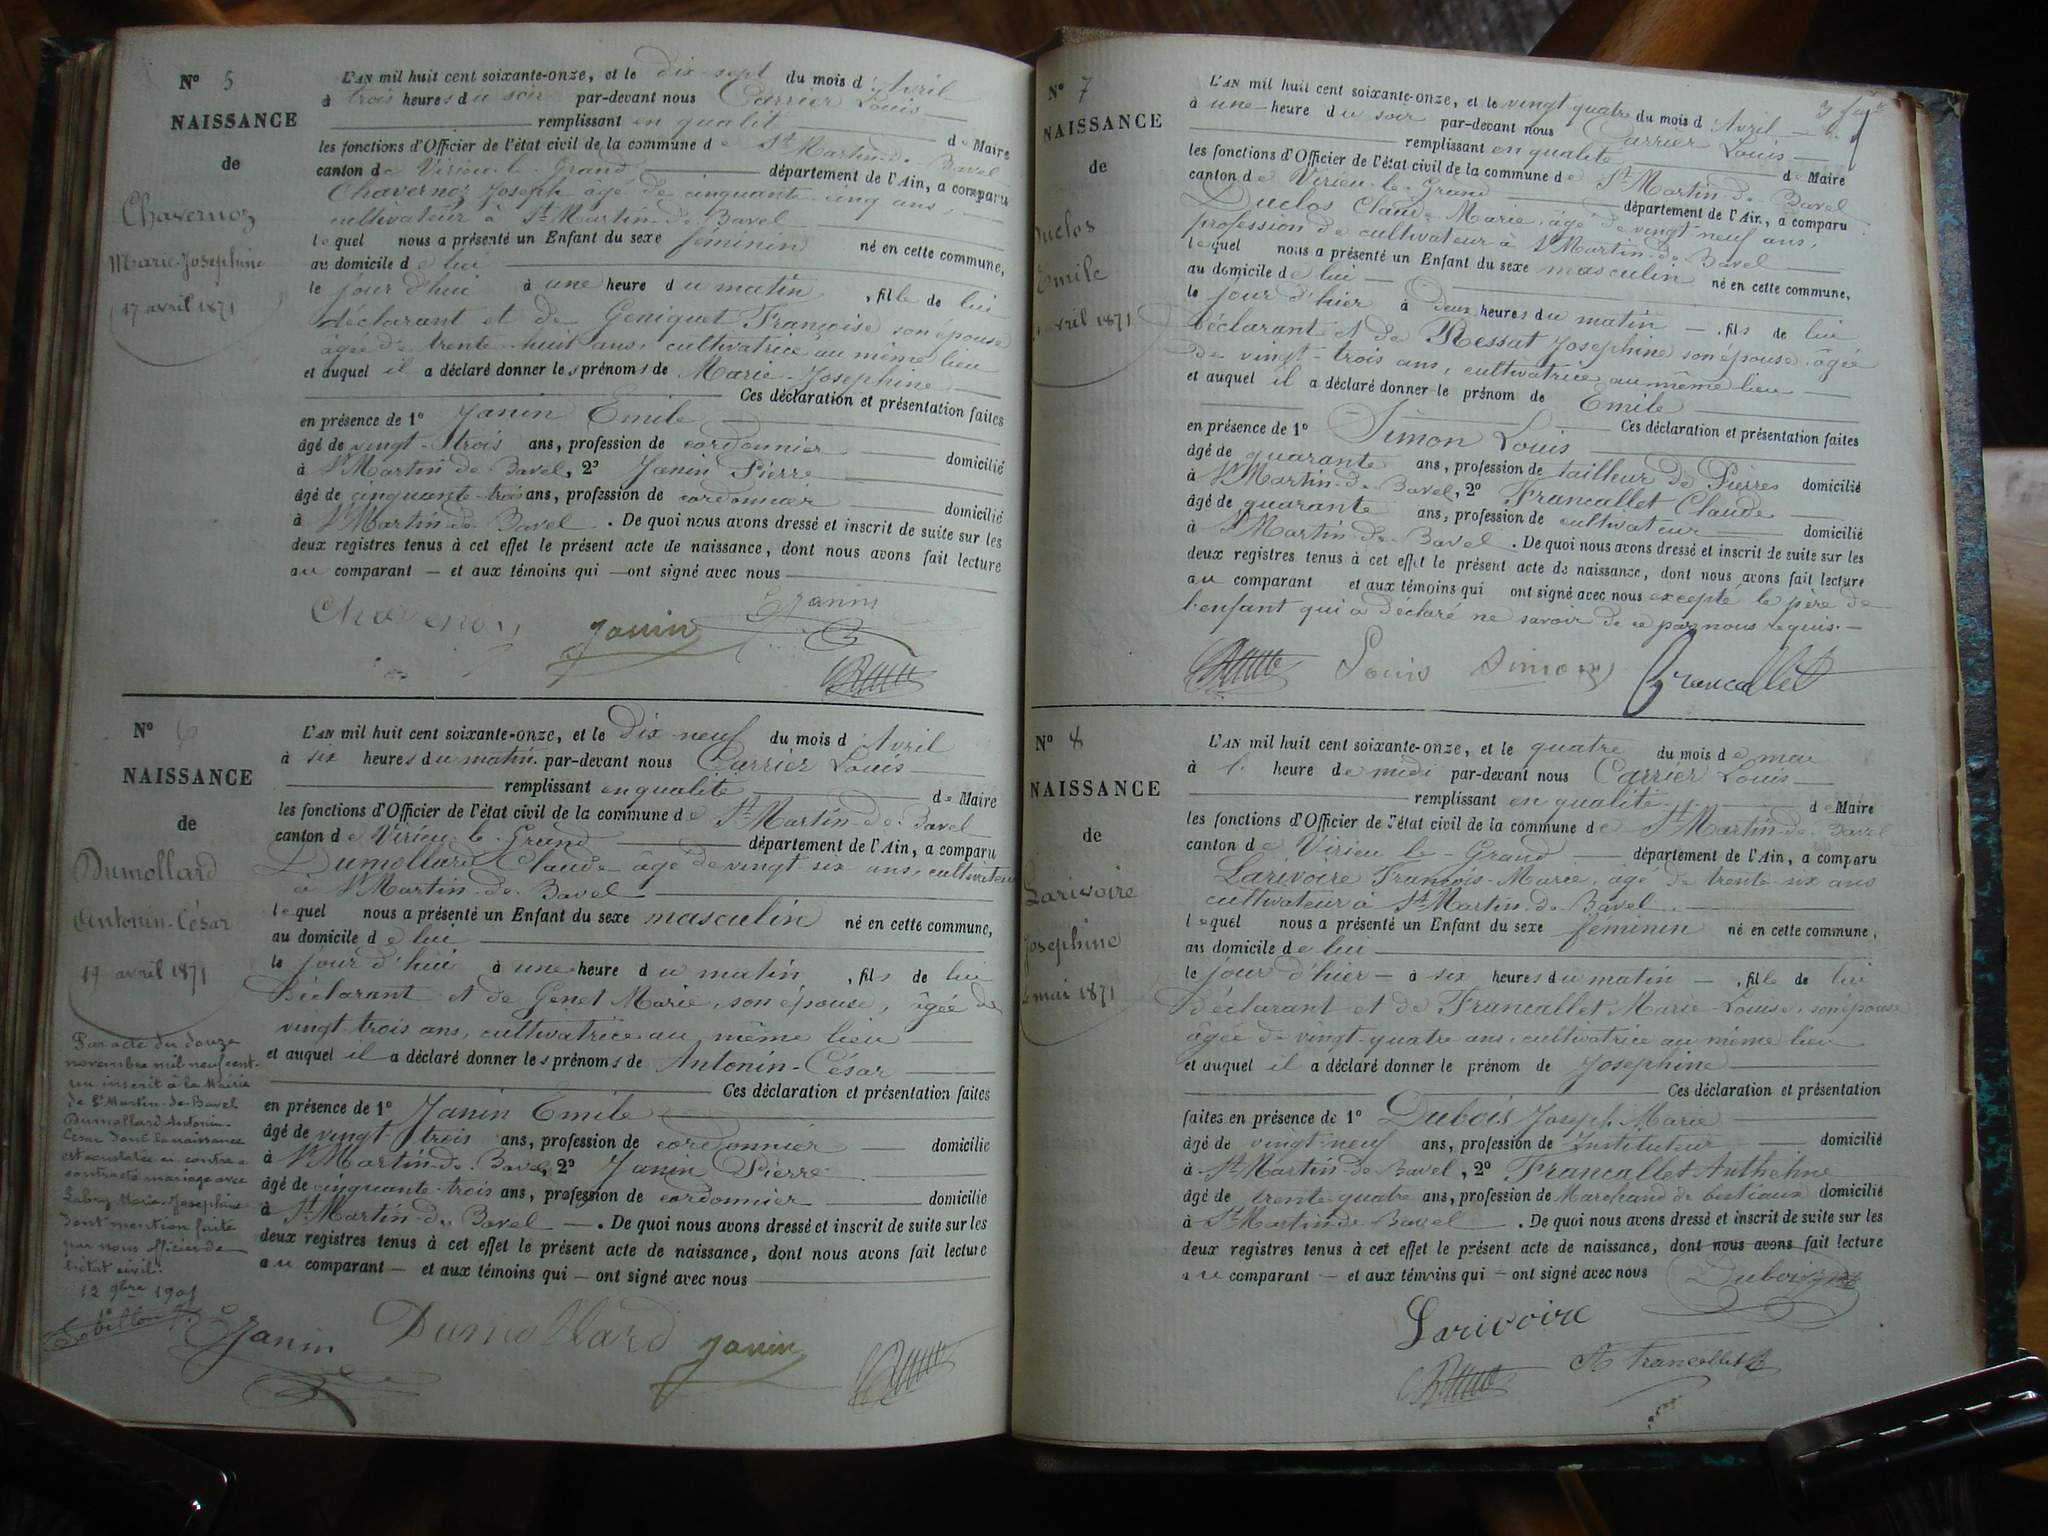 N° 5
NAISSANCE
de
Chavernoz
Marie-Josephine
17 avril 1871
L'AN mil huit cent soixante-onze, et le dix-sept du mois d'Avril
à trois heures du soir par-devant nous Carrier Louis
remplissant en qualit de Maire
les fonctions d'Officier de l'état civil de la commune de St Martin-de-Bavel
canton de Virieu-le-Grand département de l'Ain, a comparu
Chavernoz Joseph âgé de cinquante-cinq ans,
cultivateur à St Martin-de-Bavel
lequel nous a présenté un Enfant du sexe féminin né en cette commune,
au domicile de lui
le jour d'hui à une heure du matin, fille de lui
déclarant et de Geniquet Françoise son épouse
âgée de trente-huit ans, cultivatrice au même lieu
et auquel il a déclaré donner les prénoms de Marie-Josephine
Ces déclaration et présentation faites
en présence de 1° Janin Emile
âgé de vingt-trois ans, profession de cordonnier domicilié
à St Martin-de-Bavel, 2° Janin Pierre
âgé de cinquante-trois ans, profession de cordonnier domicilié
à St Martin-de-Bavel. De quoi nous avons dressé et inscrit de suite sur les
deux registres tenus à cet effet le présent acte de naissance, dont nous avons fait lecture
au comparant — et aux témoins qui — ont signé avec nous
Chavernoz Janin EJanin
N° 6
NAISSANCE
de
Dumollard
Antonin-César
19 avril 1871
Par acte du douze
novembre mil neuf cent-
un inscrit à la Mairie
de St Martin-de-Bavel
Dumollard Antonin-
César dont la naissance
est constatée ci-contre a
contracté mariage avec
Labry Marie-Josephine
dont mention faite
par nous officier de
l'état civil.
12 9bre 1901
L'AN mil huit cent soixante-onze, et le dix-neuf du mois d'Avril
à six heures du matin par-devant nous Carrier Louis
remplissant en qualité de Maire
les fonctions d'Officier de l'état civil de la commune de St Martin-de-Bavel
canton de Virieu-le-Grand département de l'Ain, a comparu
Dumollard Claude âgé de vingt-six ans, cultivateur
à St Martin-de-Bavel
lequel nous a présenté un Enfant du sexe masculin né en cette commune,
au domicile de lui
le jour d'hui à une heure du matin, fils de lui
Déclarant et de Genet Marie, son épouse, âgée de
vingt-trois ans, cultivatrice au même lieu
et auquel il a déclaré donner les prénoms de Antonin-César
Ces déclaration et présentation faites
en présence de 1° Janin Emile
âgé de vingt-trois ans, profession de cordonnier domicilié
à St Martin-de-Bavel, 2° Janin Pierre
âgé de cinquante-trois ans, profession de cordonnier domicilié
à St Martin-de-Bavel —. De quoi nous avons dressé et inscrit de suite sur les
deux registres tenus à cet effet le présent acte de naissance, dont nous avons fait lecture
au comparant — et aux témoins qui — ont signé avec nous
EJanin Dumollard Janin
N° 7
NAISSANCE
de
Duclos
Emile
avril 1871
L'AN mil huit cent soixante-onze, et le vingt quatre du mois d'Avril
à une heure du soir par-devant nous Carrier Louis
remplissant en qualité de Maire
les fonctions d'Officier de l'état civil de la commune de St Martin-de-Bavel
canton de Virieu-le-Grand département de l'Ain, a comparu
Duclos Claude-Marie, âgé de vingt neuf ans,
profession de cultivateur à St Martin-de-Bavel
lequel nous a présenté un Enfant du sexe masculin né en cette commune,
au domicile de lui
le jour d'hier à deux heures du matin —, fils de lui
déclarant et de Ressat Josephine son épouse, âgée
de vingt-trois ans, cultivatrice au même lieu
et auquel il a déclaré donner le prénom de Emile
Ces déclaration et présentation faites
en présence de 1° Simon Louis
âgé de quarante ans, profession de tailleur de Pierres domicilié
à St Martin-de-Bavel, 2° Francallet Claude
âgé de quarante ans, profession de cultivateur domicilié
à St Martin-de-Bavel. De quoi nous avons dressé et inscrit de suite sur les
deux registres tenus à cet effet le présent acte de naissance, dont nous avons fait lecture
au comparant et aux témoins qui ont signé avec nous excepté le père de
l'enfant qui a déclaré ne savoir de ce par nous requis.
Louis Simon Francallet
N° 8
NAISSANCE
de
Larivoire
Josephine
mai 1871
L'AN mil huit cent soixante-onze, et le quatre du mois de mai
à l' heure de midi par-devant nous Carrier Louis
remplissant en qualité de Maire
les fonctions d'Officier de l'état civil de la commune de St Martin-de-Bavel
canton de Virieu-le-Grand département de l'Ain, a comparu
Larivoire François-Marie, agé de trente-six ans
cultivateur à St Martin-de-Bavel
lequel nous a présenté un Enfant du sexe féminin né en cette commune,
au domicile de lui
le jour d'hier — à six heures du matin —, fille de lui
déclarant et de Francallet Marie-Louise, son épouse
âgée de vingt-quatre ans, cultivatrice au même lieu
et auquel il a déclaré donner le prénom de Josephine
Ces déclaration et présentation
faites en présence de 1° Dubois Joseph-Marie
âgé de vingt-neuf ans, profession de Instituteur domicilié
à St Martin-de-Bavel, 2° Francallet Anthelme
âgé de trente-quatre ans, profession de Marchand de bestiaux domicilié
à St Martin de Bavel. De quoi nous avons dressé et inscrit de suite sur les
deux registres tenus à cet effet le présent acte de naissance, dont nous avons fait lecture
au comparant — et aux témoins qui — ont signé avec nous Dubois
Larivoire
A Francallet